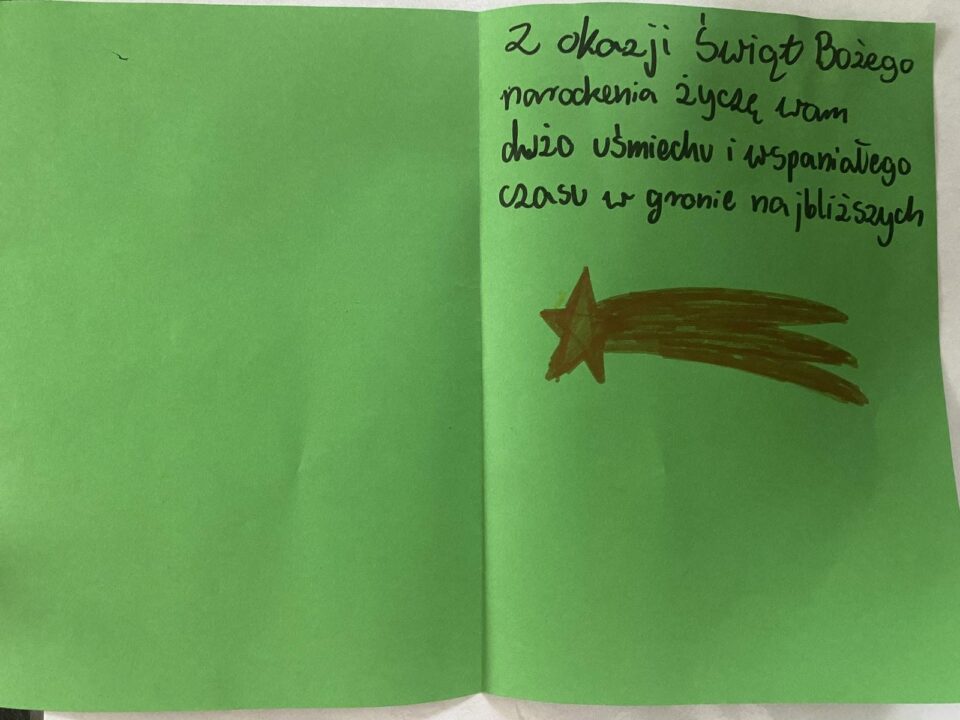 Z okazji Świąt Bożego
narodzenia życzę wam
dużo uśmiechu i wspaniałego
czasu w gronie najbliższych